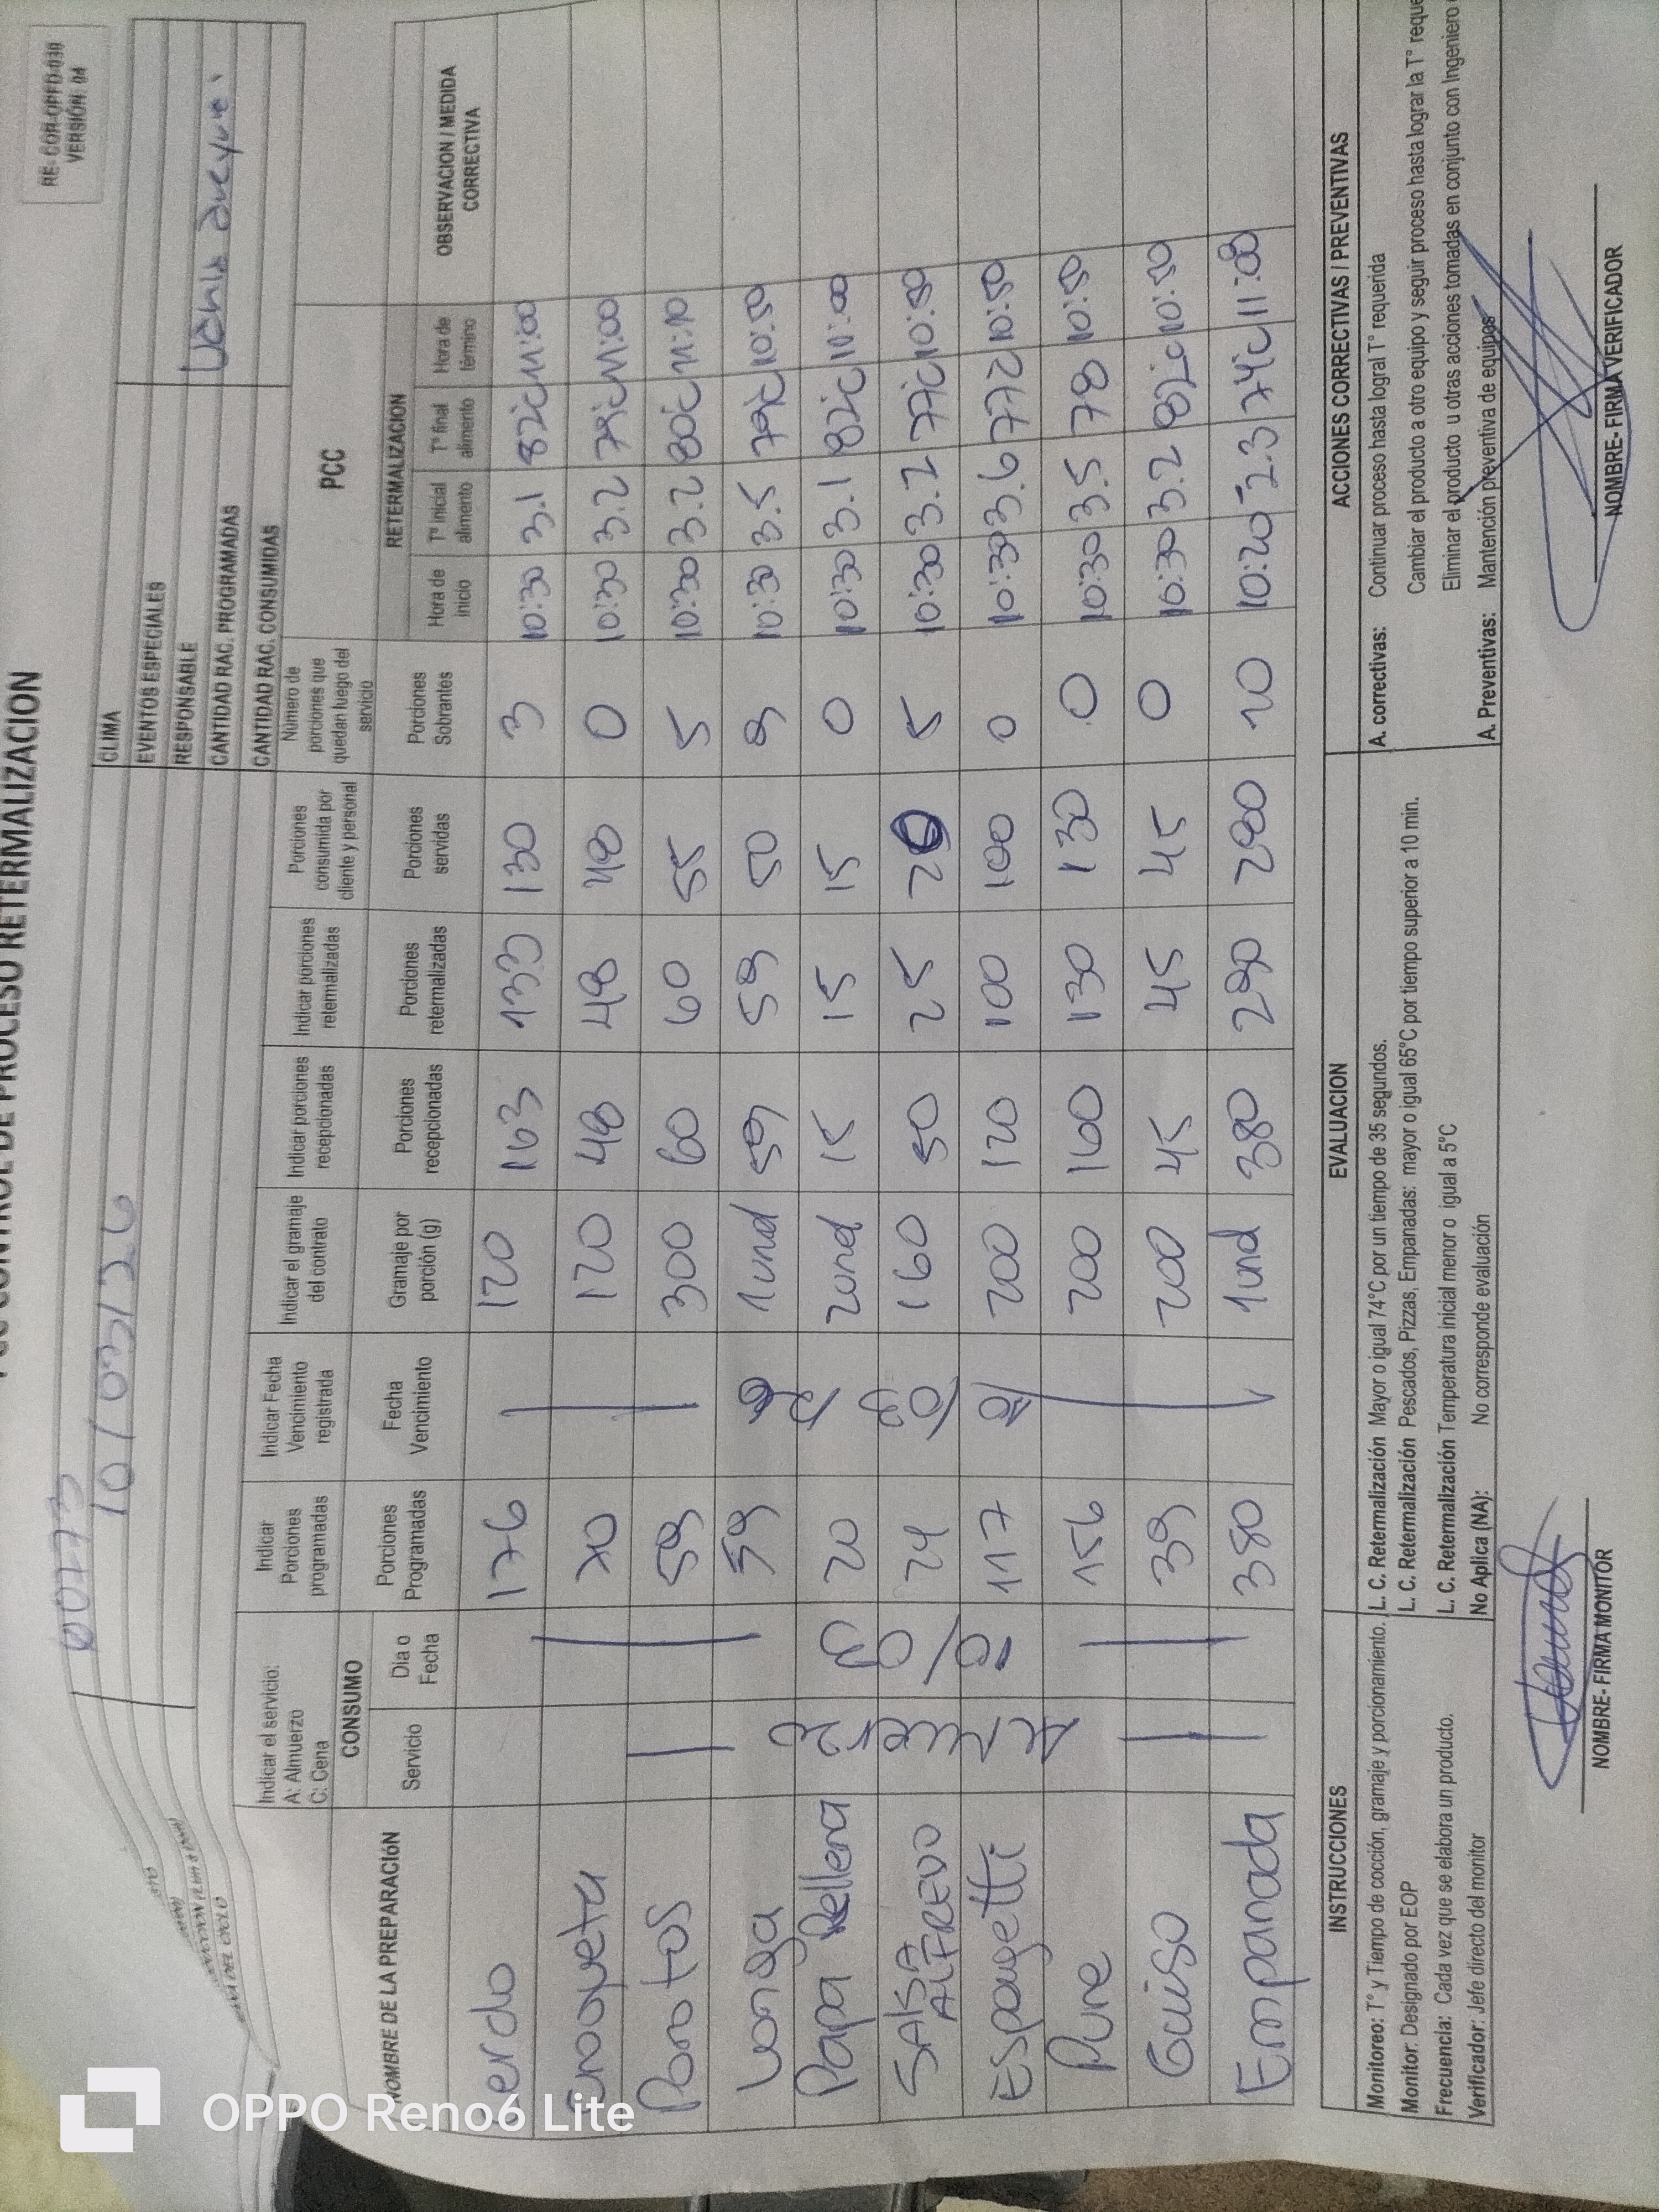 RE-COR-OPFD-030
VERSIÓN: 04
CONTROL DE PROCESO RETERMALIZACION
00773
10/03/26
CLIMA
EVENTOS ESPECIALES
RESPONSABLE
CANTIDAD RAC. PROGRAMADAS
CANTIDAD RAC. CONSUMIDAS
Indicar el servicio:
A: Almuerzo
C: Cena
Indicar Porciones programadas
Indicar Fecha Vencimiento registrada
Indicar el gramaje del contrato
Indicar porciones recepcionadas
Indicar porciones retermalizadas
Porciones consumida por cliente y personal
Número de porciones que quedan luego del servicio
PCC
NOMBRE DE LA PREPARACIÓN
CONSUMO
Servicio
Dia o Fecha
Porciones Programadas
Fecha Vencimiento
Gramaje por porción (g)
Porciones recepcionadas
Porciones retermalizadas
Porciones servidas
Porciones Sobrantes
RETERMALIZACION
Hora de inicio
Tº Inicial alimento
Tº final alimento
Hora de término
OBSERVACION / MEDIDA CORRECTIVA
Cerdo 176 120 163 133 130 3 10:30 3.1 82°C 11:00
Croqueta 70 120 48 48 48 0 10:30 3.2 79°C 11:00
Porotos 59 300 60 60 55 5 10:30 3.2 80°C 11:10
Longa 59 1und 59 59 50 9 10:30 3.5 79°C 10:50
Papa Rellena 20 2und 15 15 15 0 10:30 3.1 82°C 11:00
SALSA ALFREDO 24 160 50 25 20 5 10:30 3.2 77°C 10:50
Espagetti 117 200 120 100 100 0 10:30 3.6 77°C 10:50
Pure 156 200 160 130 130 0 10:30 3.5 78 10:50
Guiso 39 200 45 45 45 0 10:30 3.2 82°C 10:50
Empanada 380 1und 380 290 280 10 10:20 -2.3 74°C 11:00
INSTRUCCIONES
Monitoreo: Tº y Tiempo de cocción, gramaje y porcionamiento.
Monitor: Designado por EOP
Frecuencia: Cada vez que se elabora un producto.
Verificador: Jefe directo del monitor
EVALUACION
L. C. Retermalización Mayor o igual 74°C por un tiempo de 35 segundos.
L. C. Retermalización Pescados, Pizzas, Empanadas: mayor o igual 65°C por tiempo superior a 10 min.
L. C. Retermalización Temperatura inicial menor o igual a 5°C
No Aplica (NA): No corresponde evaluación
ACCIONES CORRECTIVAS / PREVENTIVAS
A. correctivas: Continuar proceso hasta logral Tº requerida
Cambiar el producto a otro equipo y seguir proceso hasta lograr la Tº reque
Eliminar el producto u otras acciones tomadas en conjunto con Ingeniero
A. Preventivas: Mantención preventiva de equipos
NOMBRE- FIRMA MONITOR
NOMBRE- FIRMA VERIFICADOR
OPPO Reno6 Lite